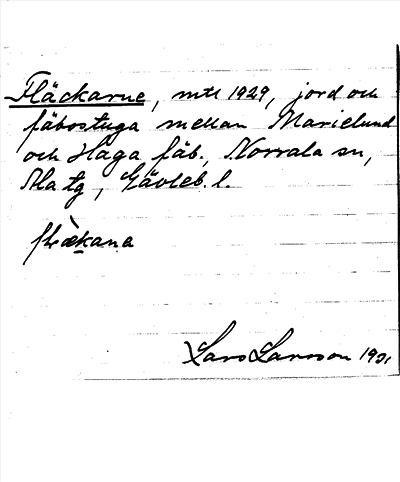 Fläckarne, mtl 1929, jord och
fäbostuga mellan Marielund
och Haga fäb., Norrala sn,
Ala tg, Gävleb. l.
flæ̀kana
Lars Larsson 1931